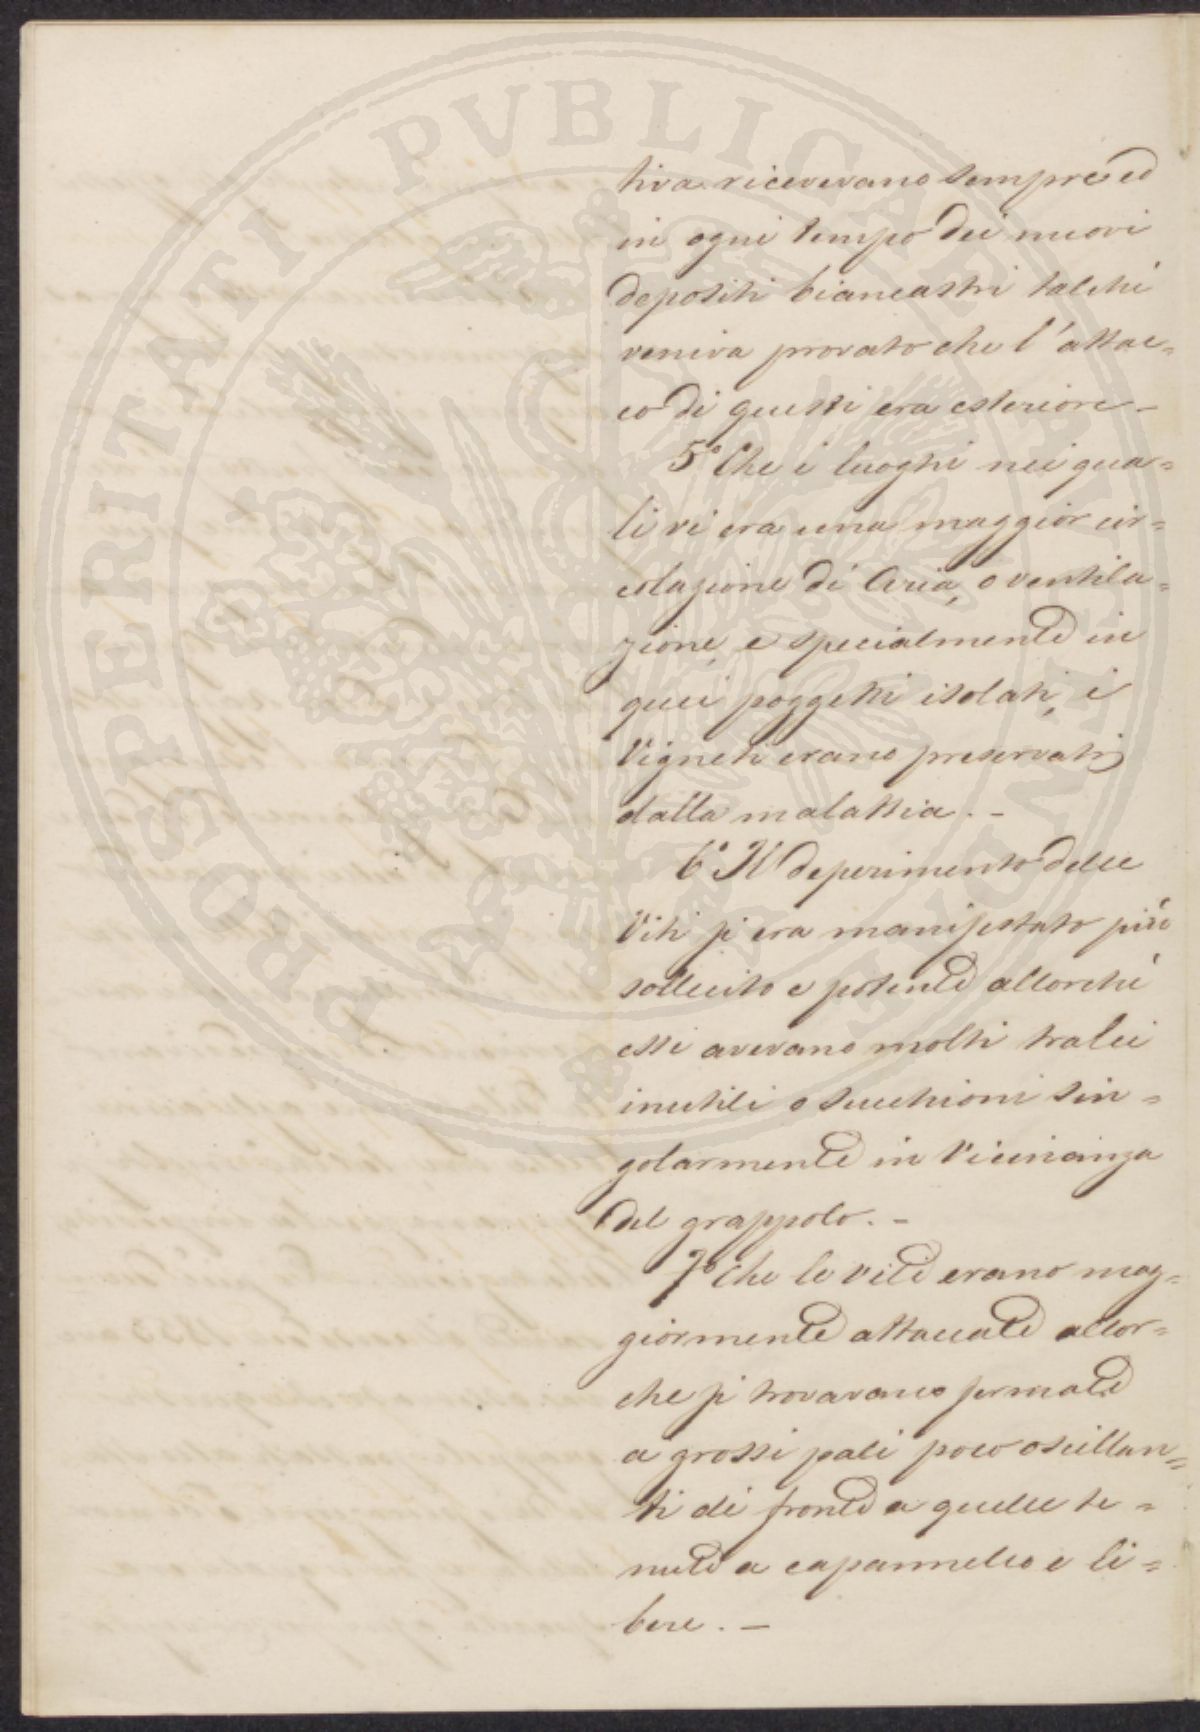 PROSPERITATI PVBLICAE AVGENDAE
tiva ricevevano sempre ed
in ogni tempo dei nuovi
depositi biancastri talchè
veniva provato che l'attac=
co di questi era esteriore –
5° Che i luoghi nei qua=
li vi era una maggior cir=
colazione di Aria, o ventila=
zione, e specialmente in
quei poggetti isolati, i
Vigneti erano preservati
dalla malattia. –
6° Il deperimento delle
Viti si era manifestato più
sollecito e potente allorchè
esse avevano molti tralci
inutili o succhioni sin=
golarmente in Vicinanza
del grappolo. –
7° Che le viti erano mag=
giormente attaccate allor=
che si trovavano fermate
a grossi pali poco oscillan=
ti di fronte a quelle te=
nute a capannello e li=
bere. –